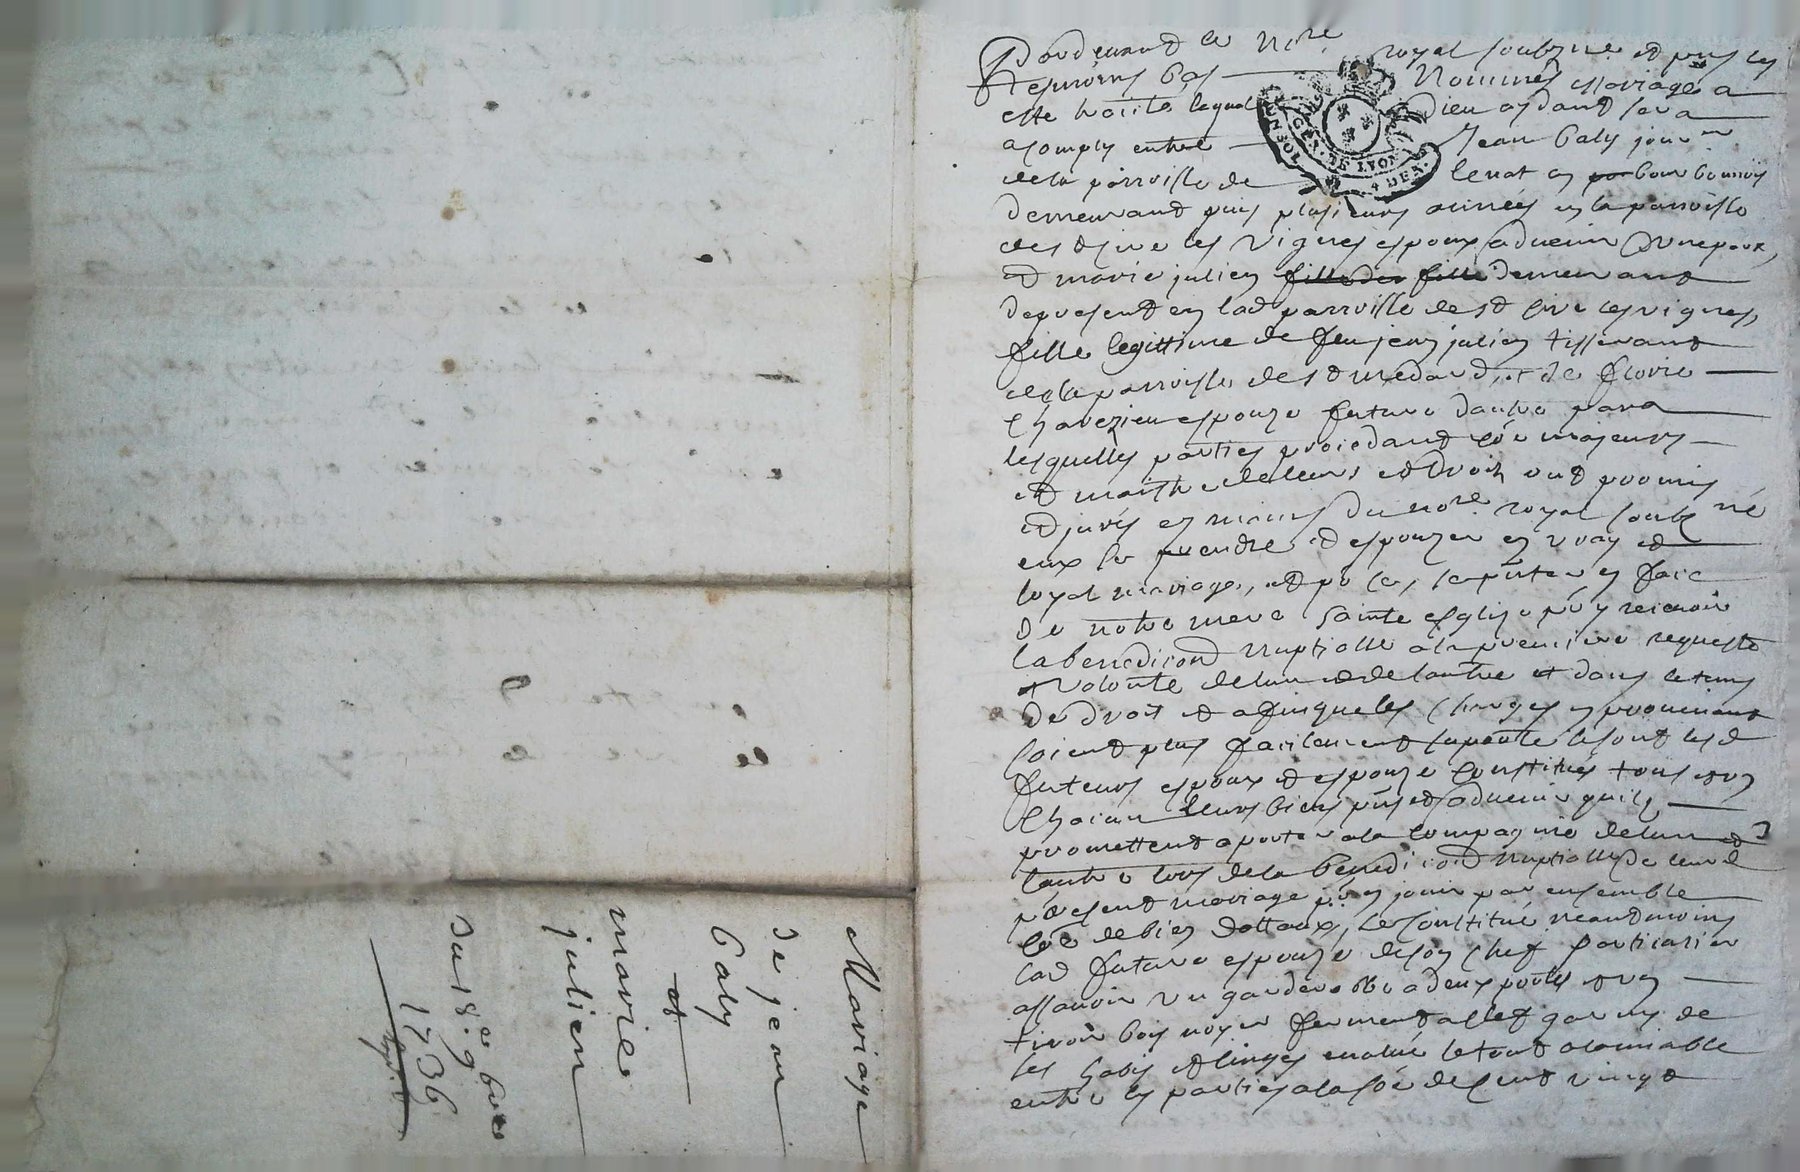 Mariage
de jean
Caly
et
marie
julien
du 18e 9bre
1736
Pardevant le Nore royal soubzne et puis les
tesmoins bas Nommés mariage a
este traitté lequel Dieu aydant sera
acomply entre Jean Caly jour
de la parroisse de lenat en bourbonnois
demeurant puis plusieurs années en la parroisse
de st sire les vignes espoux advenir d'une part,
et marie julien fille de fille demeurant
depresent en lad parroisse de st sire les vignes,
fille legittime de feu jean julien tisserant
de la parroisse de st medard, et de florie
Chavezieu espouze future dautre part
lesquelles parties procedant coe majeurs
et maistre de leurs et droits ont promis
et jurés es mains du nore royal soubzné
eux se prendre et espouzer en vray et
loyal mariage, et po ce, se pnter en face
de notre mere sainte esglize po y recevoir
la benediction nuptialle a la premiere requeste
et volonté de lun et de lautre et dans le tems
de droit et afin que les charges en provenant
soient plus facilement suporté se sont lesd
futeurs espoux et espouze constitués tous et un
chacun leurs biens pnts et advenir quils
promettent aporter a la compagnie de lun et
lautre lors de la benediction nuptialle de leurd
present mariage po en jouir par ensemble
coe de bien dottaux, se constitue neantmoins
lad future espouze de son chef particulier
assavoir un garderobe a deux portes et un
tiroir bois noyer fermant a clef garny de
ses habis et linges evalué le tout a lamiable
entre les parties a la soe de cent vingt
GEN. DE LYON
4 DEN.